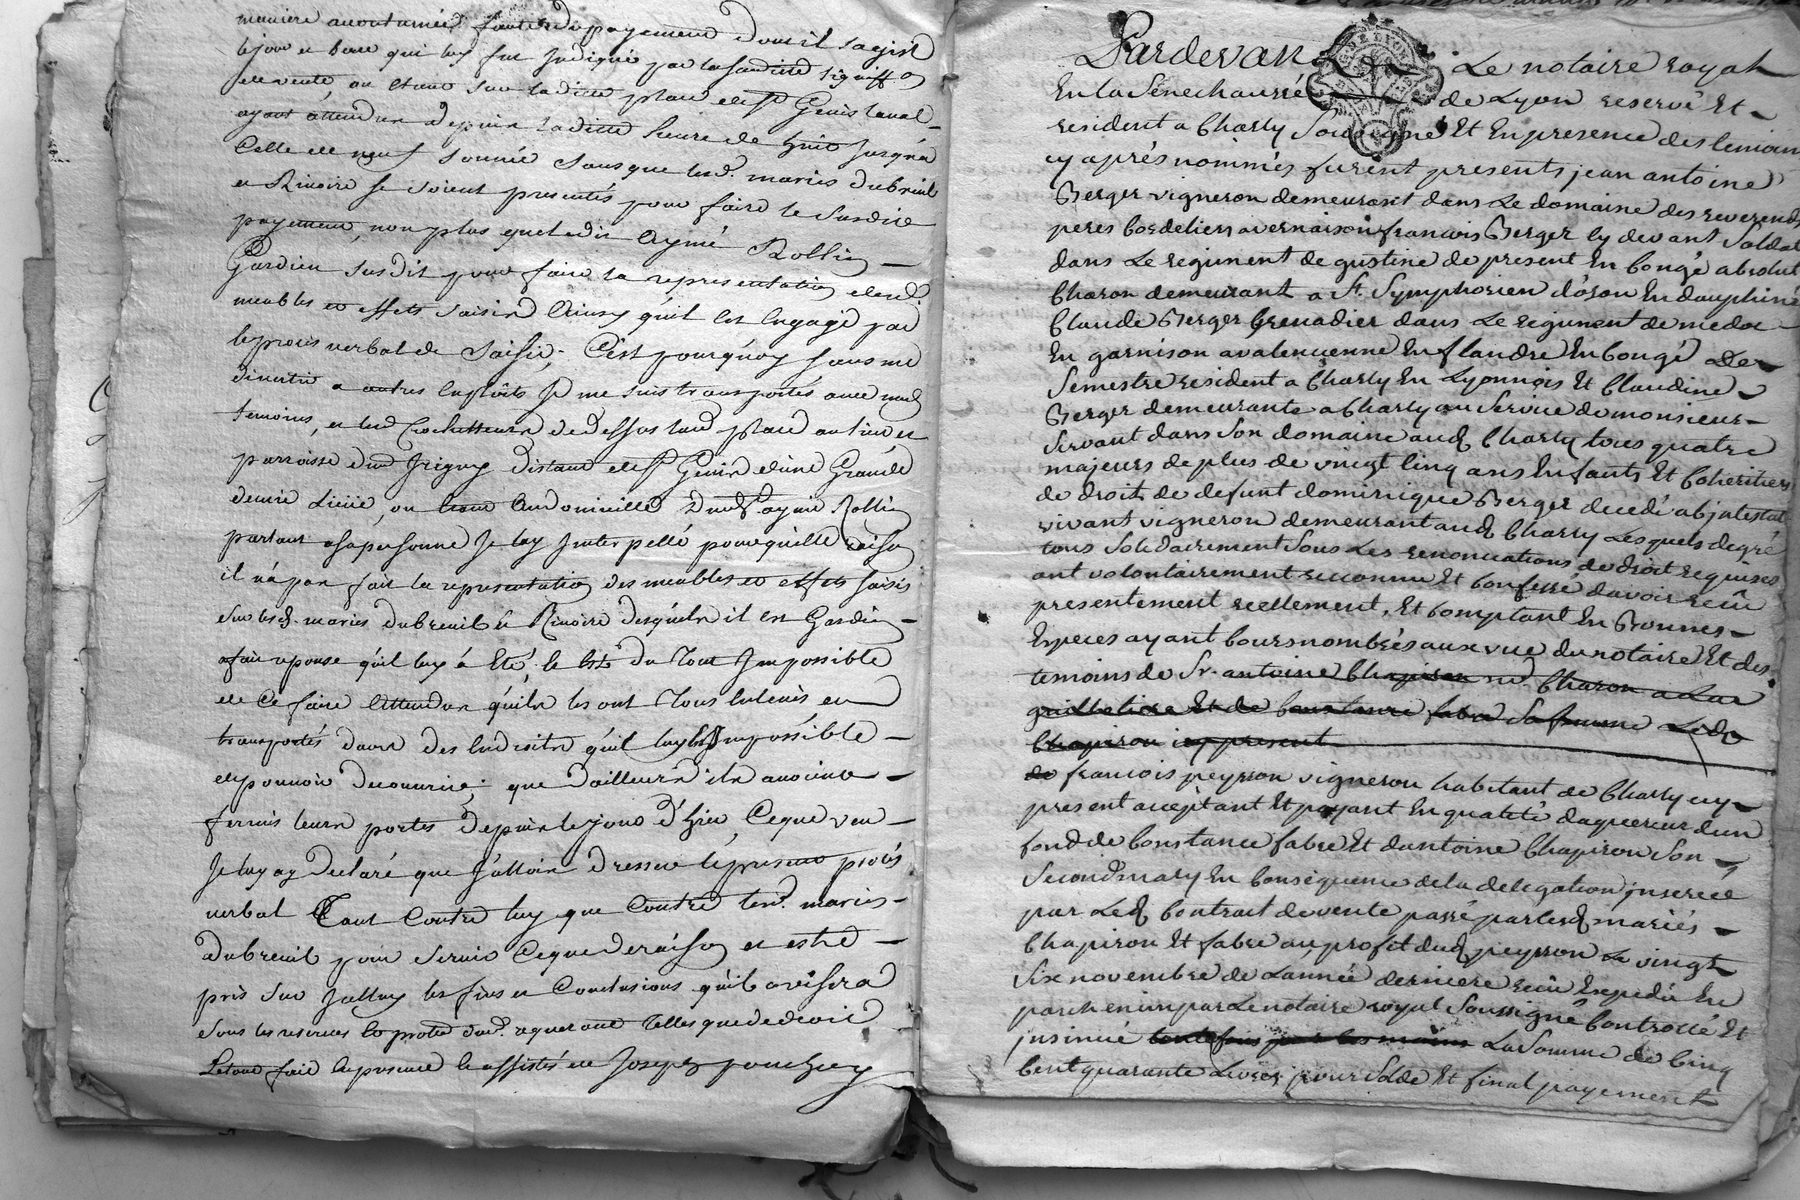 maniere accoutumée, faute de payement dont il sagist
le jour et heure qui luy fut indiqué par la susditte
de vente, ou etant sur la ditte place de St Genis Laval
ayant attendu depuis laditte heure de huit jusqu'a
Celle de neuf sonnée sans que lesd. mariés dubreuil
et Rivoire se soient presentés pour faire le susdit
payement, non plus que ledit Aymé Rollin
Gardien susdit pour faire la representation desd.
meubles et effets saisis Ainsy qu'il est Engagé par
le procès verbal de Saisie; C'est pourquoy sans me
divertir a autres Exploits Je me suis transportés avec mes
temoins, et led. de dessus lad. place au lieu et
parroisse dud. Irigny distant de St Genis d'une Grande
demie Lieüe, ou etant Au domicille Dud. aymé Rollin
parlant a sa personne Je l'ay Interpellé pourquelle raison
il n'a pas fait la representation des meubles et effets saisis
sur lesd. mariés dubreuil et Rivoire desquels il est Gardien
a fait reponse qu'il luy a Eté, le tout Impossible
de Ce faire Attendu qu'ils les ont Tous Enlevés et
transportés dans des Endroits qu'il luy est Impossible
de pouvoir decouvrir; que d'ailleurs ils avoient
fermés leurs portes depuis le jour d'hier, Ce que veu
Je luy ay declaré que J'allois dresser le present procès
verbal Tant Contre luy que Contre lesd. mariés
dubreuil pour servir Ce que de raison et estre
pris sur Icelluy les fins et Conclusions qu'il avisera
sous les reserves et dud. requerant Telles que de droit
Le tout fait le presence Et assistés de Joseph
Pardevan Le notaire royal
En la Sénechaussé de Lyon reservé Et
resident a Charly Soussigné Et En presence des temoins
cy aprés nommés furent presents jean antoine
Berger vigneron demeurant dans Le domaine des reverends
peres Cordeliers a vernaison francois Berger cy devant Soldat
dans Le regiment de gustine de present En Congé absolut
Charon demeurant a St. Symphorien d'ôson En dauphiné
Claude Berger Grenadier dans Le regiment de medoc
En garnison a valencienne En flandre En Congé De
Semestre resident a Charly En Lyonnois Et Claudine
Berger demeurante a Charly au Service de monsieur
Servant dans Son domaine aud Charly tous quatre
majeurs de plus de vingt Cinq ans Enfants Et Coheritiers
de droit de defunt dominique Berger decedé abjntestat
vivant vigneron demeurant aud Charly Lesquels de gré
tous Solidairement Sous Les renonciations de droit requises
ont volontairement reconnu Et Confessé davoir recû
presentement reellement, Et Comptant En Bonnes
Especes ayant Cours nombrés aux vue du notaire Et des
temoins de Sr. antoine Chapiron md Charon a La
guillotiere Et de Constance fabre Sa femme
Chapiron icy present
de francois peyrron vigneron habitant de Charly icy
present acceptant Et payant En qualité daquereur d'un
fond de Constance fabre Et dantoine Chapiron Son
Second mary En Conséquence de la delegation jnserée
par Led Contrait de vente passé par lesd mariés
Chapiron Et fabre au profit dud peyrron Le vingt
Six novembre de Lannée derniere recû Expedié En
parchemin par Le notaire royal Soussigné Controllé Et
jnsinué La Somme de Cinq
Cent quarante Livres pour Solde Et final payement